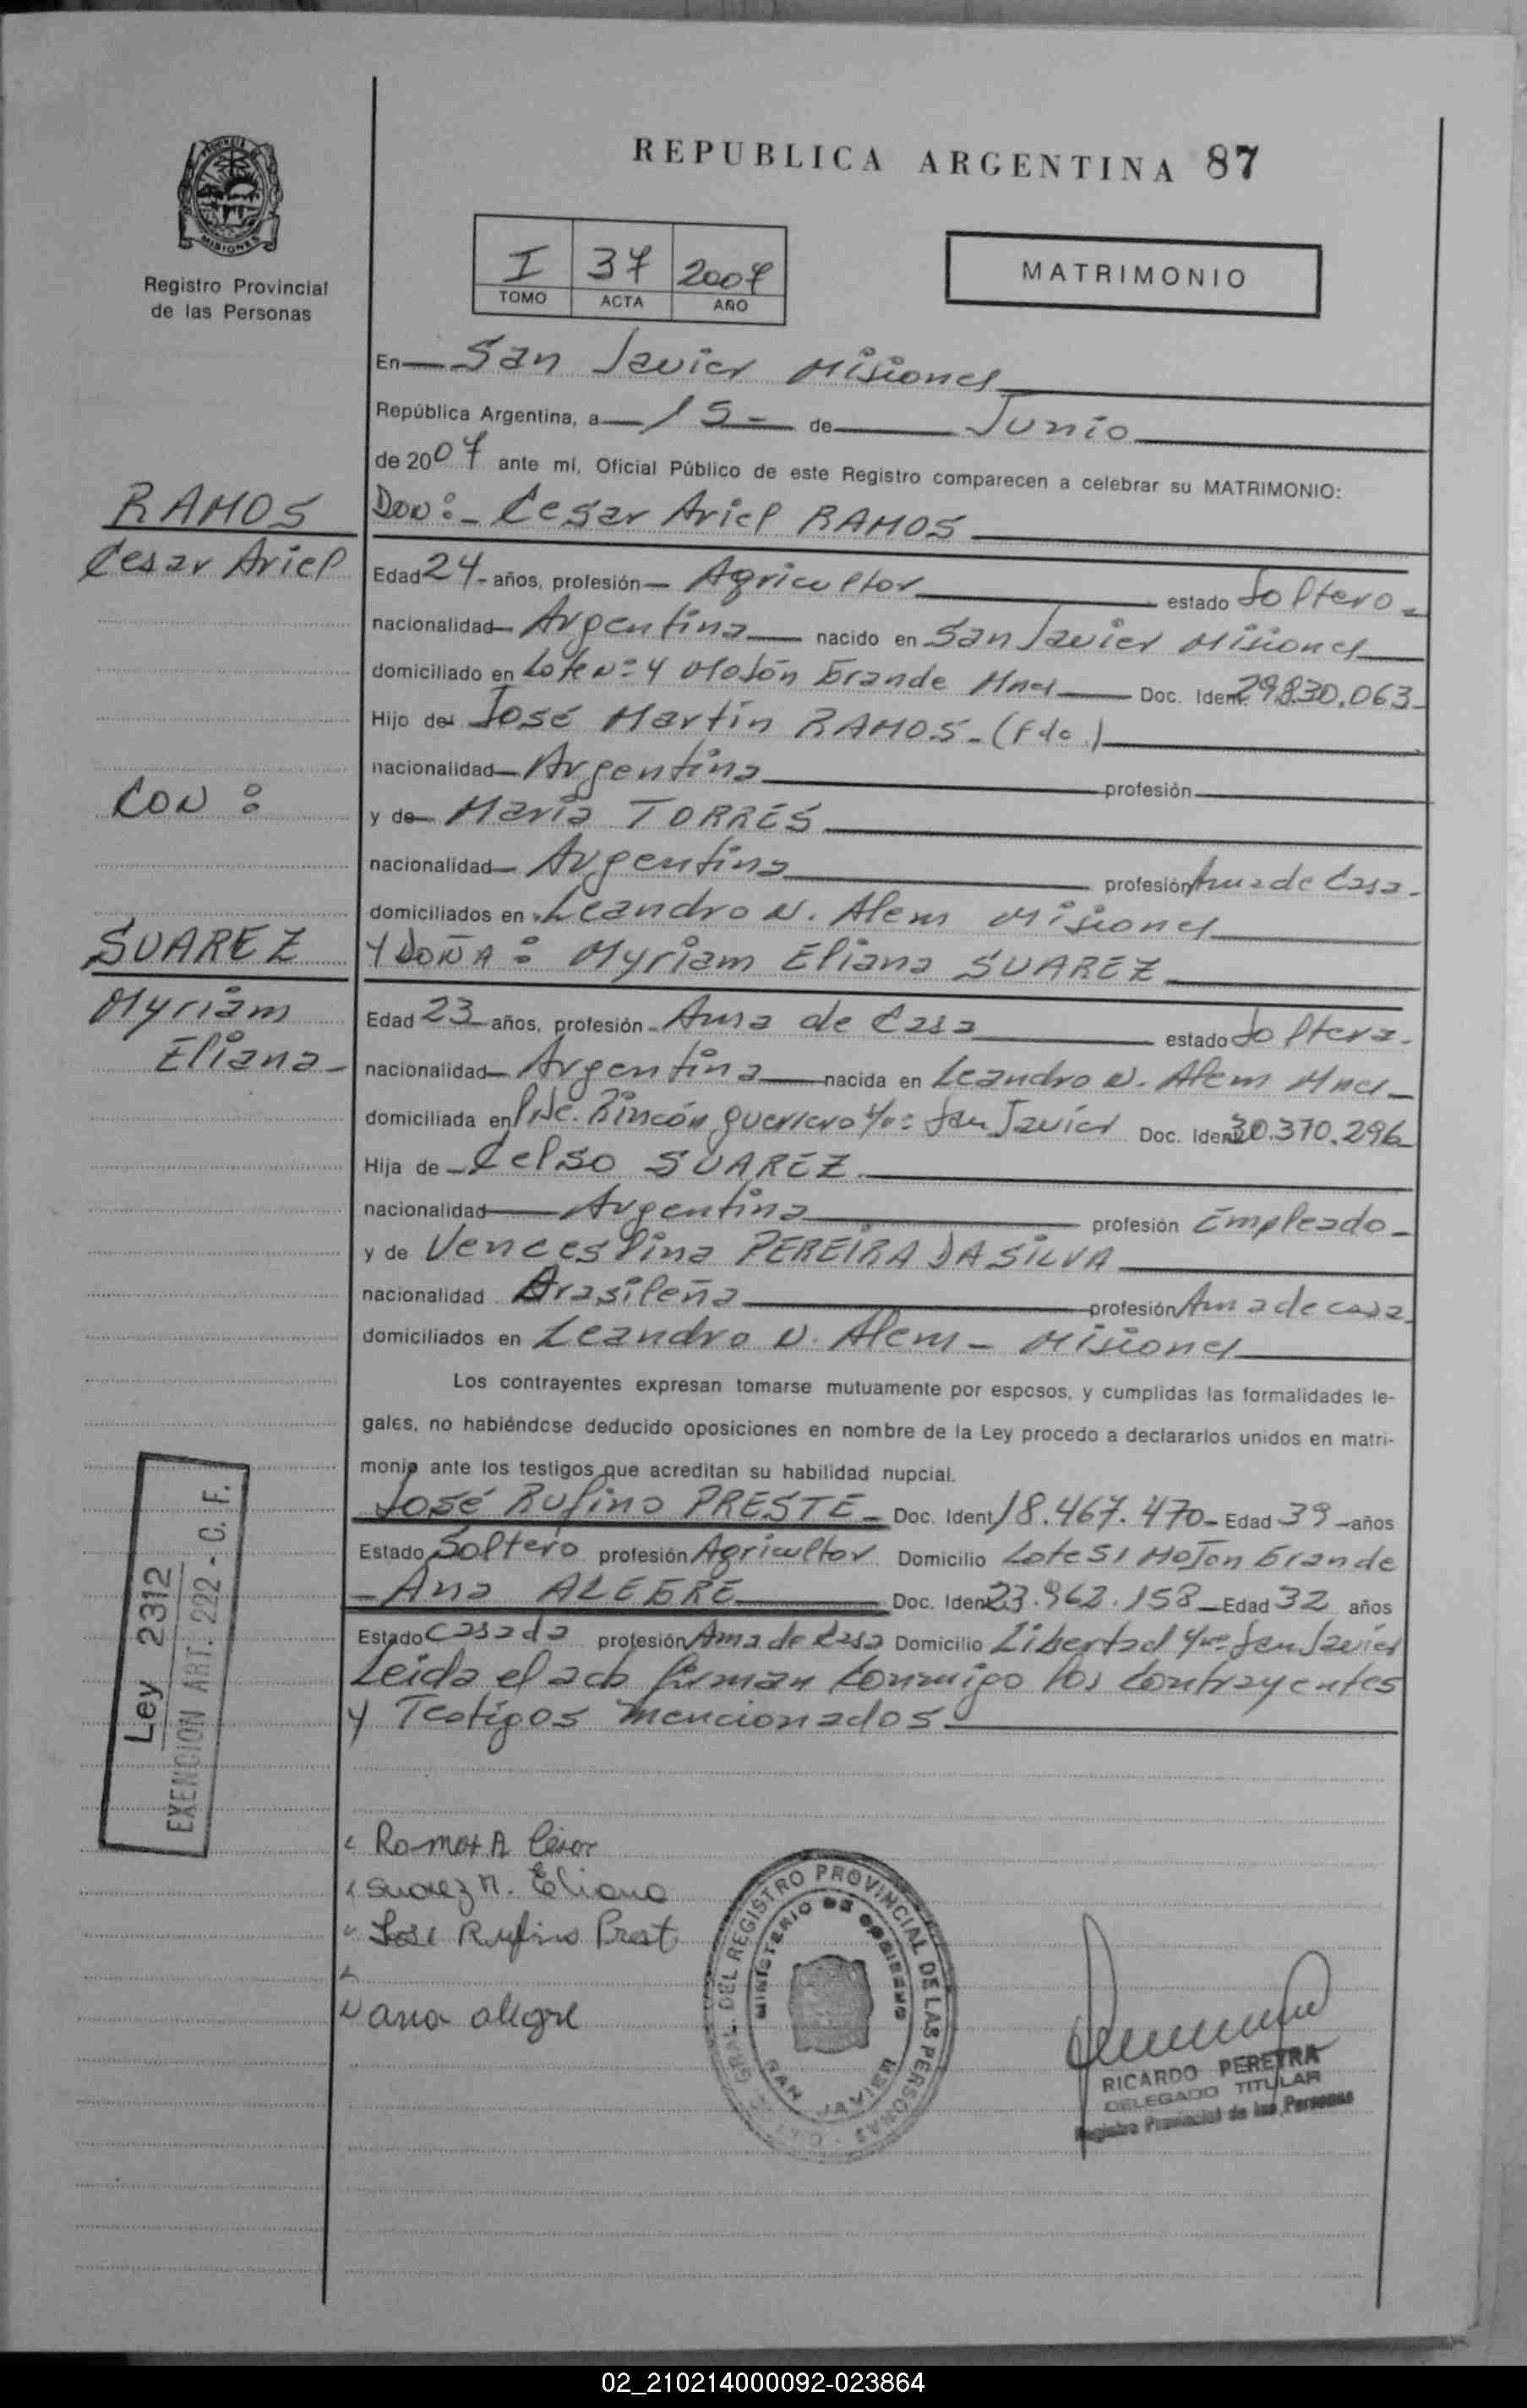 REPUBLICA ARGENTINA 87
MISIONES
Registro Provincial
de las Personas
I 37 2007
TOMO ACTA AÑO
MATRIMONIO
En San Javier Misiones
República Argentina, a 15 - de Junio
de 2007 ante mí, Oficial Público de este Registro comparecen a celebrar su MATRIMONIO:
RAMOS
Cesar Ariel
CON :
SUAREZ
Myriam
Eliana
Don :- Cesar Ariel RAMOS
Edad 24- años, profesión Agricultor estado Soltero
nacionalidad Argentina nacido en San Javier Misiones
domiciliado en Lote Nº 4 Mojón Grande Mnes Doc. Ident. 29.830.063
Hijo de José Martín RAMOS - (Fdo.)
nacionalidad Argentina profesión
y de María TORRES
nacionalidad Argentina profesión Ama de Casa.
domiciliados en Leandro N. Alem Misiones
Y DOÑA : Myriam Eliana SUAREZ
Edad 23 años, profesión Ama de Casa estado Soltera.
nacionalidad Argentina nacida en Leandro N. Alem Mnes
domiciliada en Pje. Rincón guerrero San Javier Doc. Ident. 30.370.296
Hija de Celso SUAREZ
nacionalidad Argentina profesión Empleado
y de Venceslina PEREIRA DA SILVA
nacionalidad Brasileña profesión Ama de casa.
domiciliados en Leandro N. Alem - Misiones
Los contrayentes expresan tomarse mutuamente por esposos, y cumplidas las formalidades le-
gales, no habiéndose deducido oposiciones en nombre de la Ley procedo a declararlos unidos en matri-
monio ante los testigos que acreditan su habilidad nupcial.
José Rufino PRESTE - Doc. Ident. 18.467.470 - Edad 39 años
Estado Soltero profesión Agricultor Domicilio Lote 51 Mojon Grande
- Ana ALEGRE Doc. Ident. 23.962.158 Edad 32 años
Estado Casada profesión Ama de Casa Domicilio Libertad San Javier
Leida el acta firman conmigo los contrayentes
y Testigos mencionados
Ley 2312
EXENCION ART. 222 - C. F.
Ramos A Cesar
Suarez M. Eliana
José Rufino Prest
ana alegre
GRAL. DEL REGISTRO PROVINCIAL DE LAS PERSONAS
MINISTERIO DE GOBIERNO
SAN JAVIER
RICARDO PEREYRA
DELEGADO TITULAR
Registro Provincial de las Personas
02_210214000092-023864